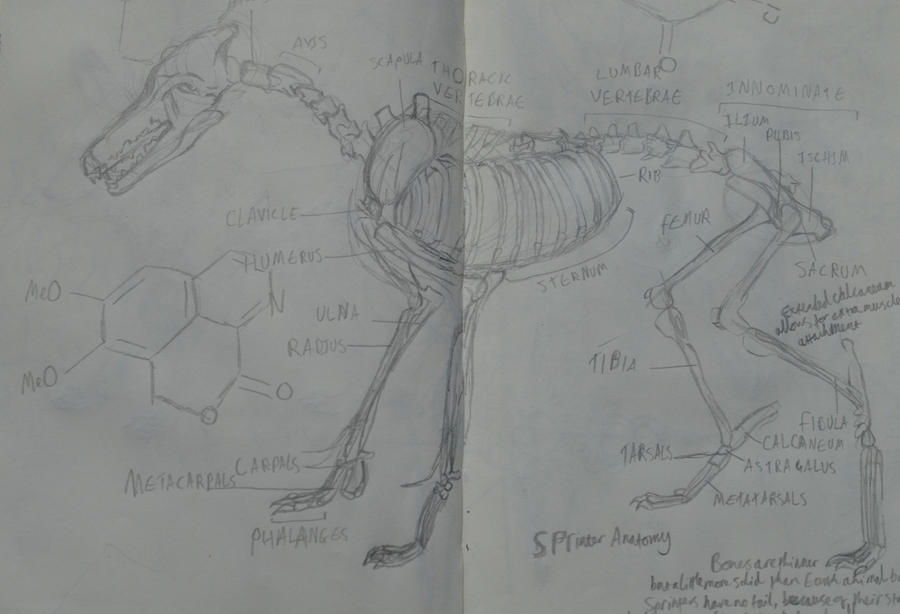 AXIS
SCAPULA
THORACIC
VERTEBRAE
LUMBAR
VERTEBRAE
INNOMINATE
ILIUM
PUBIS
ISCHIM
RIB
CLAVICLE
FEMUR
HUMERUS
STERNUM
SACRUM
Extended calcaneum
allows for extra muscle
attachment
MeO
N
ULNA
RADIUS
TIBIA
MeO
O
O
O
Cl
FIBULA
CALCANEUM
TARSALS
ASTRAGALUS
CARPALS
METACARPALS
METATARSALS
PHALANGES
SPrinter Anatomy
Bones are thinner
but a little more solid than Earth animal
Sprinters have no tail, because of their